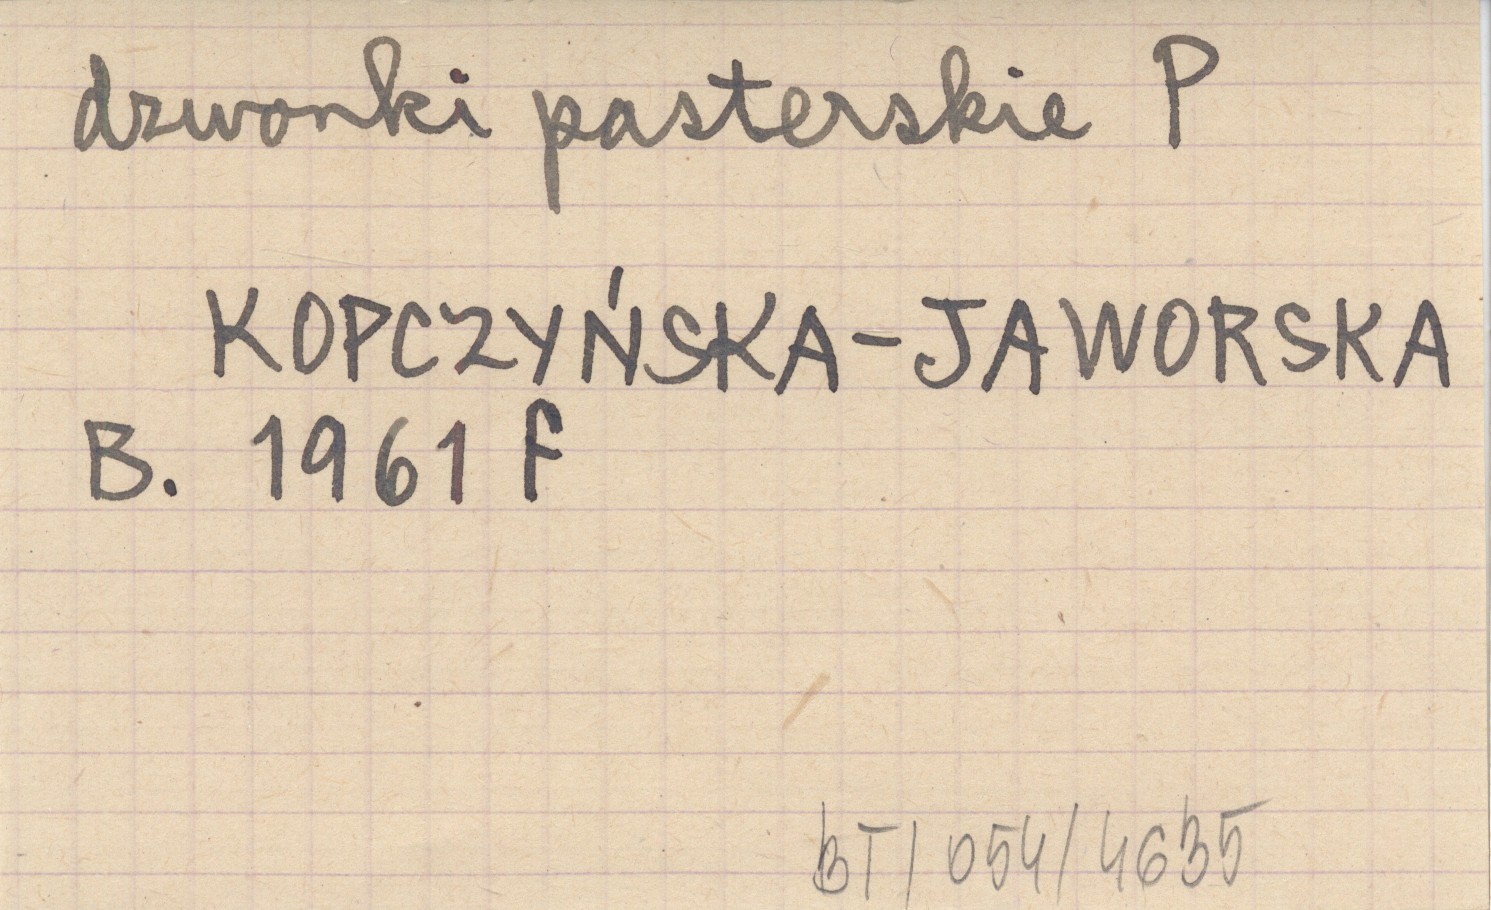 dzwonki pasterskie P
KOPCZYŃSKA-JAWORSKA
B. 1961 f
BT/054/4635